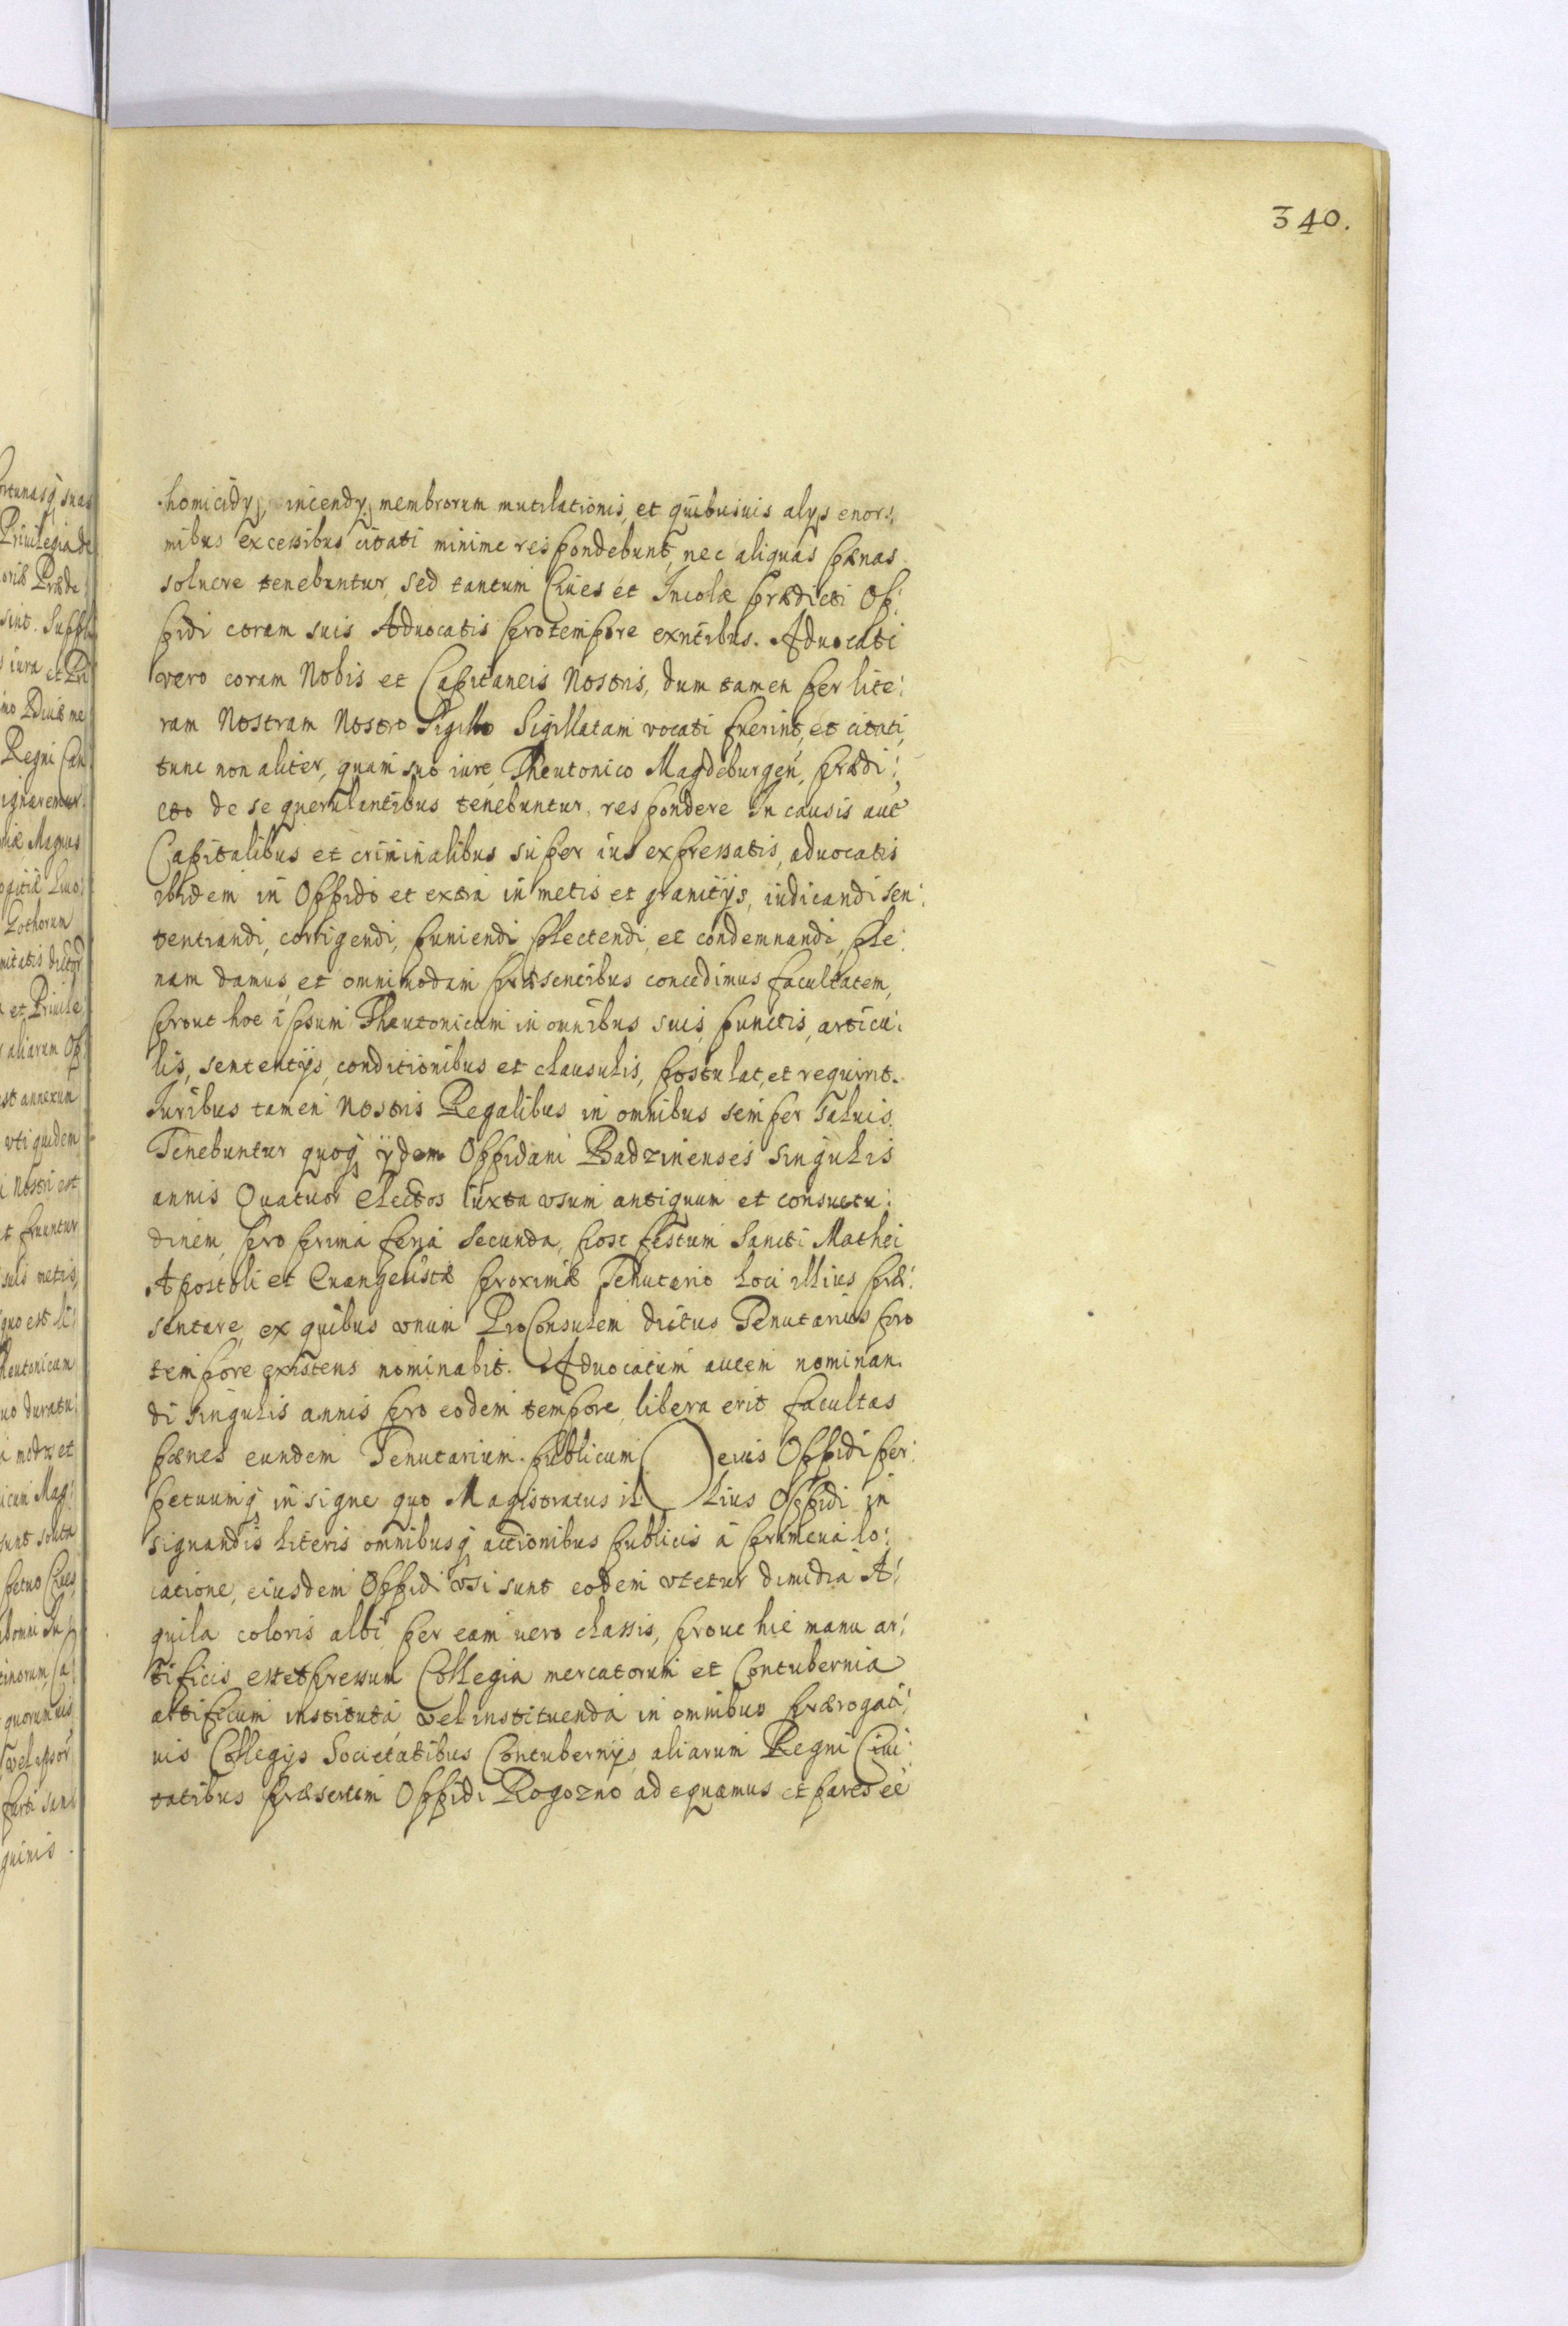 340.
homicidy, incendy, membrorum mutilationis, et quibusuis alys enor:
mibus excessibus citati minime respondebunt, nec aliquas pænas
soluere tenebuntur, sed tantum Ciues et Incolæ prædicti Op:
pidi coram suis Aduocatis pro tempore exntibus. Aduocati
vero coram Nobis et Capitaneis Nostris, dum tamen per lite:
ram Nostram Nostro Sigillo Sigillatam vocati fuerint, et citati,
tunc non aliter, quam suo iure Theutonico Magdeburgen, prædi:
cto de se querulantibus tenebuntur respondere In causis aut
Capitalibus et criminalibus super ius expressatis, aduocatis
ibidem in Oppido et extra in metis et granicijs, iudicandi sen:
tentiandi, corrigendi, puniendi plectendi, et condemnandi, ple:
nam damus, et omnimodam præsentibus concedimus facultatem,
prout hoc ipsum Theutonicum in omnibus suis, punctis, articu:
lis, sententijs, conditionibus et clausulis, postulat, et requirit.
Iuribus tamen Nostris Regalibus in omnibus semper saluis.
Tenebuntur quoq ijdem Oppidani Badzinenses singulis
annis Quatuor electos iuxta vsum antiquum et consuetu:
dinem, pro prima feria secunda, post festum Sancti Mathei
Apostoli et Euangelistæ proximæ Tenutario loci illius præ:
sentare, ex quibus vnum ProConsulem dictus Tenutarius pro
tempore existens nominabit. Aduocatum autem nominan:
di singulis annis pro eodem tempore, libera erit facultas
pænes eundem Tenutarium. publicum eius Oppidi per:
petuumq insigne quo Magistratus il lius Oppidi in
signandis literis omnibusq actionibus publicis a primeua lo:
catione, eiusdem Oppidi vsi sunt eodem vtetur dimidia A:
quila coloris albi per eam vero classis, prout hic manu ar:
tificis est expressum Collegia mercatorum et Contubernia
artificum instituta vel instituenda in omnibus prærogati:
uis Collegijs Societatibus Contubernijs aliarum Regni Ciui:
tatibus præsertim Oppidi Rogozno adequamus et pares eē